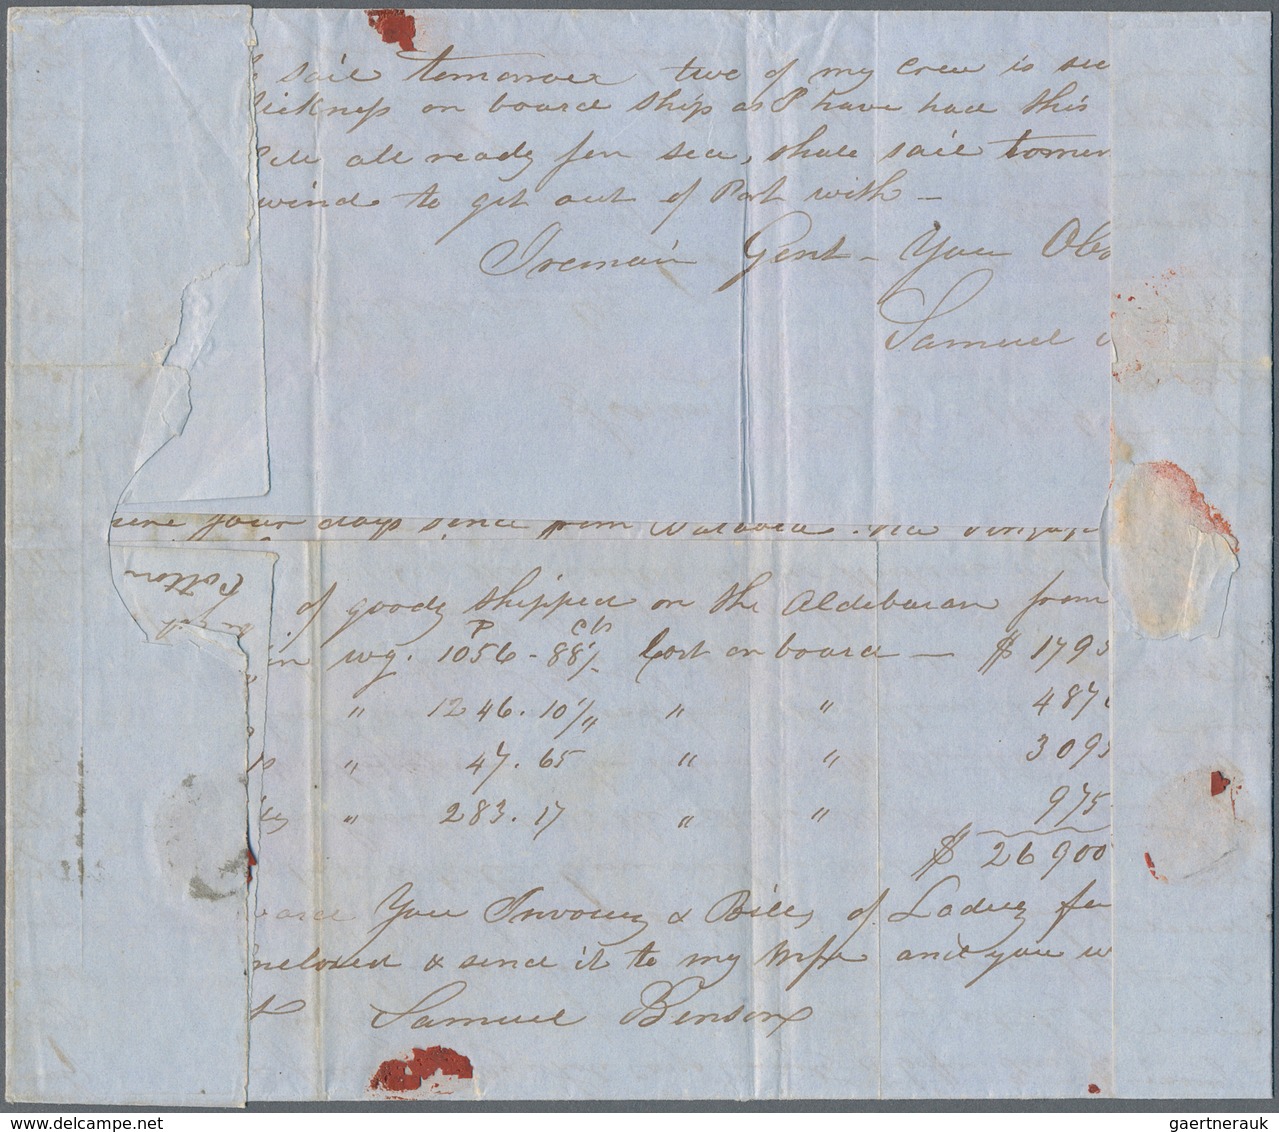 sail tomorrow two of my crew is
sickness on board ship as I have had this
all ready for sea, shall sail
wind to get out of Port with –
I remain Gent – Your Obe
Samuel
four days since from
Cotton
of goods shipped on the Aldebaran from
wg. 1056 - 88 Cost on board — $ 1795
" 1246. 10 " " 487
" 47. 65 " " 3095
" 283. 17 " " 975
$ 26900
You Invoices & Bills of Lading
enclosed & send it to my Wife and you
Samuel Benson
gaertnerauk @ www.delcampe.net